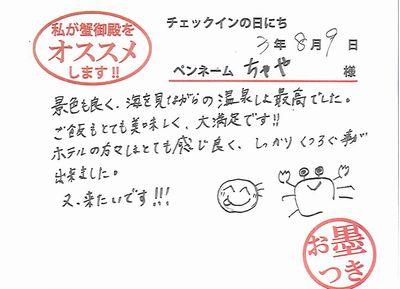 私が蟹御殿を
オススメ
します!!
チェックインの日にち
3年8月9日
ペンネーム ちゃや 様
景色も良く、海を見ながらの温泉は最高でした。
ご飯もとても美味しく、大満足です!!
ホテルの方々はとても感じ良く、しっかりくつろぐ事が
出来ました。
又、来たいです!!!
お墨
つき